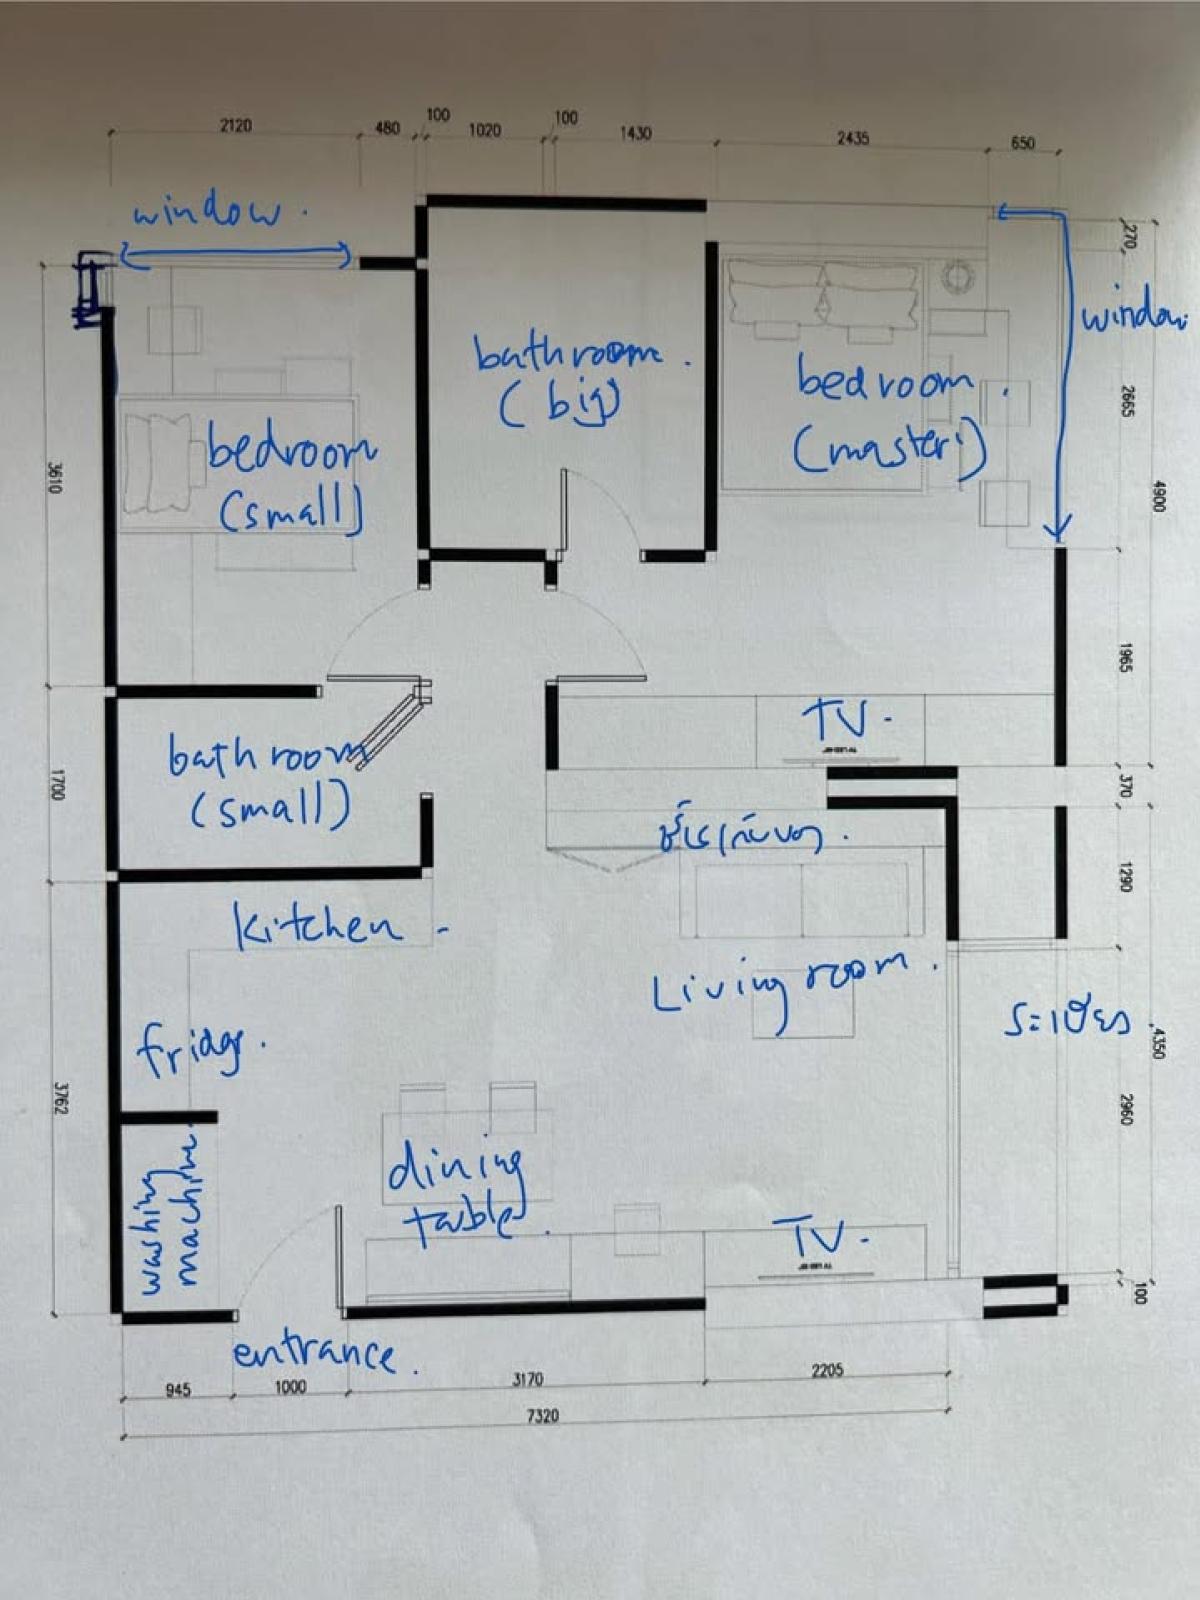 2120
480
100
1020
100
1430
2435
650
window.
270
window
bathroom.
(big)
bedroom.
(master)
bedroom
(small)
3610
2665
4900
1965
TV.
bathroom
(small)
1700
370
1290
Kitchen
Living room.
ระเบียง
fridge.
4350
2960
3762
dining
table.
washing
machine.
TV.
100
entrance.
945
1000
3170
2205
7320